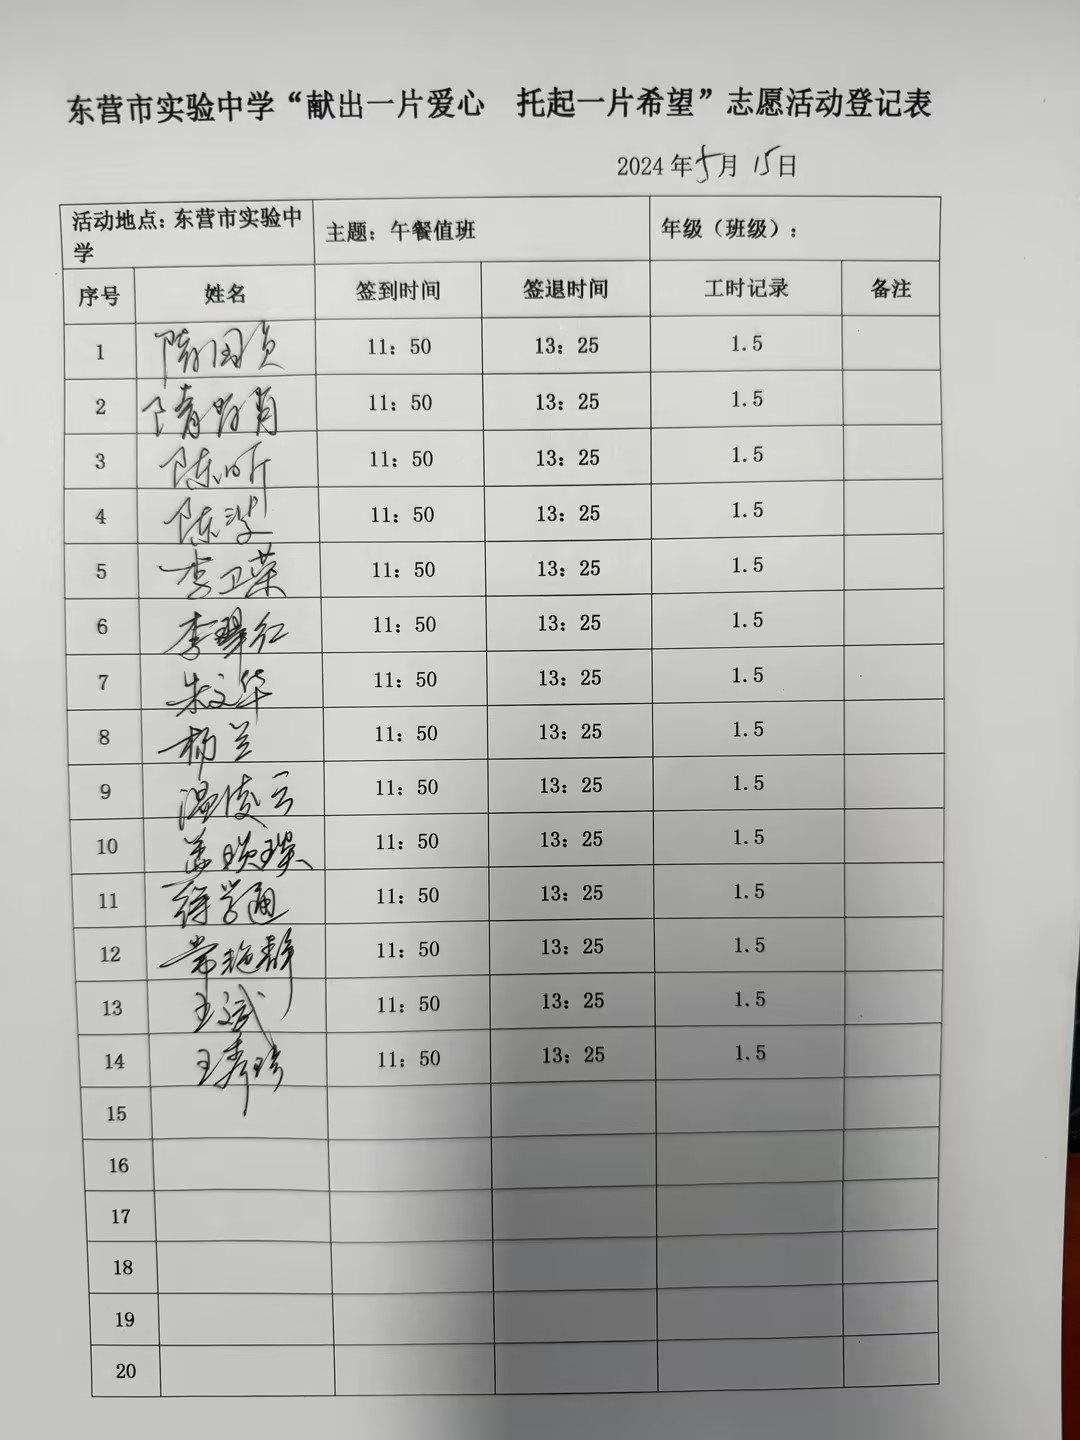 东营市实验中学“献出一片爱心 托起一片希望”志愿活动登记表
2024年5月15日
活动地点：东营市实验中学 主题：午餐值班 年级（班级）：
序号 姓名 签到时间 签退时间 工时记录 备注
1 隋国贞 11：50 13：25 1.5
2 11：50 13：25 1.5
3 陈昕 11：50 13：25 1.5
4 陈 11：50 13：25 1.5
5 李卫荣 11：50 13：25 1.5
6 李翠红 11：50 13：25 1.5
7 朱文华 11：50 13：25 1.5
8 杨兰 11：50 13：25 1.5
9 温俊云 11：50 13：25 1.5
10 11：50 13：25 1.5
11 徐学通 11：50 13：25 1.5
12 常艳静 11：50 13：25 1.5
13 王文武 11：50 13：25 1.5
14 王秀珍 11：50 13：25 1.5
15
16
17
18
19
20